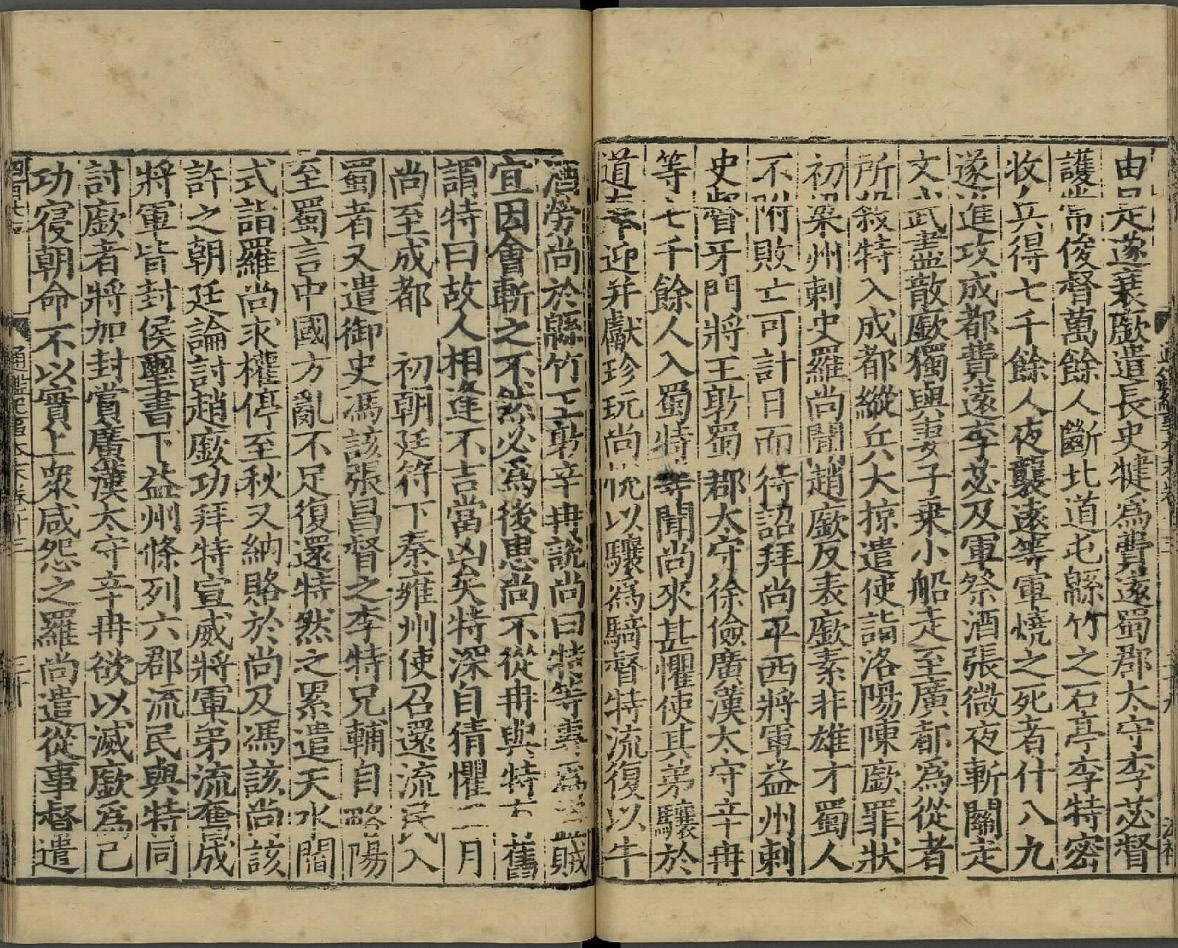 由是遂衰廞遣長史犍爲費遠蜀郡太守李苾督
護常俊督萬餘人斷北道屯緜竹之石亭李特密
收兵得七千餘人夜襲遠等軍燒之死者什八九
遂進攻成都費遠李苾及軍祭酒張微夜斬關走
文武盡散廞獨與妻子乗小船走至廣都爲從者
所殺特入成都縱兵大掠遣使詣洛陽陳廞罪狀
初梁州刺史羅尚聞趙廞反表廞素非雄才蜀人
不附敗亡可計日而待詔拜尚平西將軍益州刺
史督牙門將王敦蜀郡太守徐儉廣漢太守辛冉
等七千餘人入蜀特等聞尚來甚懼使其弟驤於
道奉迎并獻珍玩尚悅以驤爲騎督特流復以牛
酒勞尚於緜竹王敦辛冉說尚曰特等專爲盜賊
宜因會斬之不然必爲後患尚不從冉與特有舊
謂特曰故人相逢不吉當凶矣特深自猜懼 月
尚至成都 初朝廷符下秦雍州使召還流民入
蜀者又遣御史馮該張昌督之李特兄輔自略陽
至蜀言中國方亂不足復還特然之累遣天水閻
式詣羅尚求權停至秋又納賂於尚及馮該尚該
許之朝廷論討趙廞功拜特宣威將軍弟流奮威
將軍皆封侯璽書下益州條列六郡流民與特同
討廞者將加封賞廣漢太守辛冉欲以滅廞爲己
功寑朝命不以實上衆咸怨之羅尚遣從事督遣
通鑑紀事本末卷十三